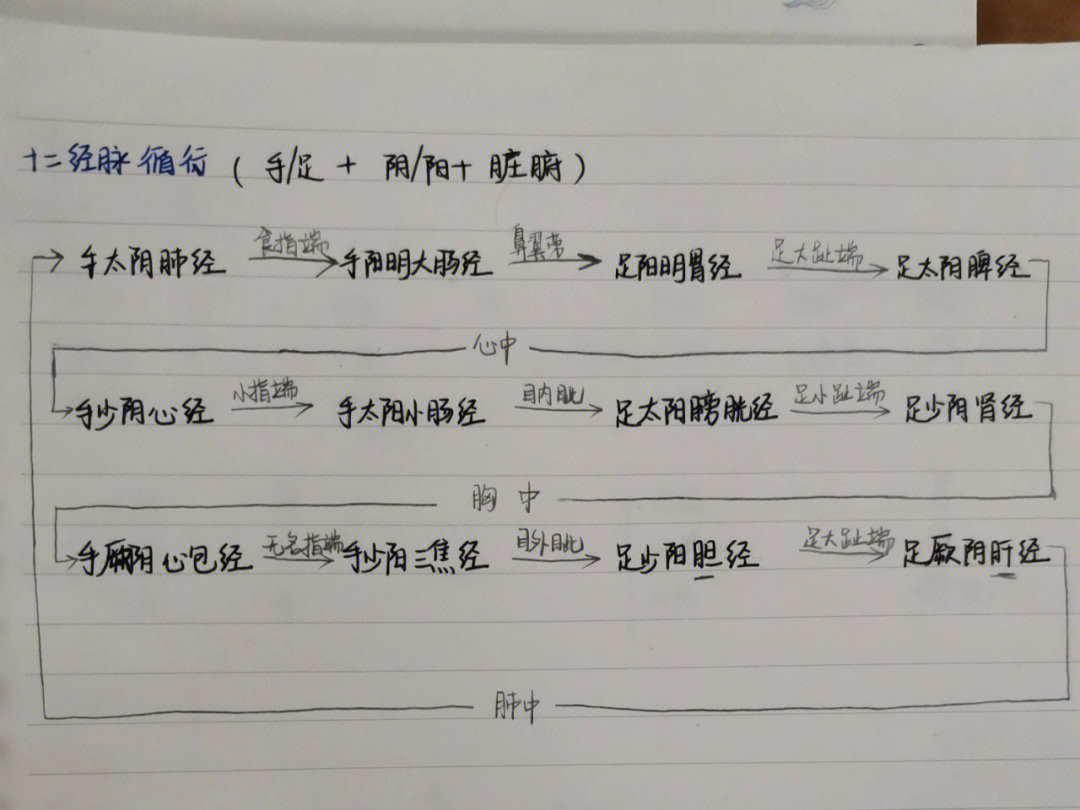 十二经脉循行(手/足 + 阴/阳+ 脏腑)
手太阴肺经 食指端 手阳明大肠经 鼻翼旁 足阳明胃经 足大趾端 足太阴脾经
心中
手少阴心经 小指端 手太阳小肠经 目内眦 足太阳膀胱经 足小趾端 足少阴肾经
胸中
手厥阴心包经 无名指端 手少阳三焦经 目外眦 足少阳胆经 足大趾端 足厥阴肝经
肺中